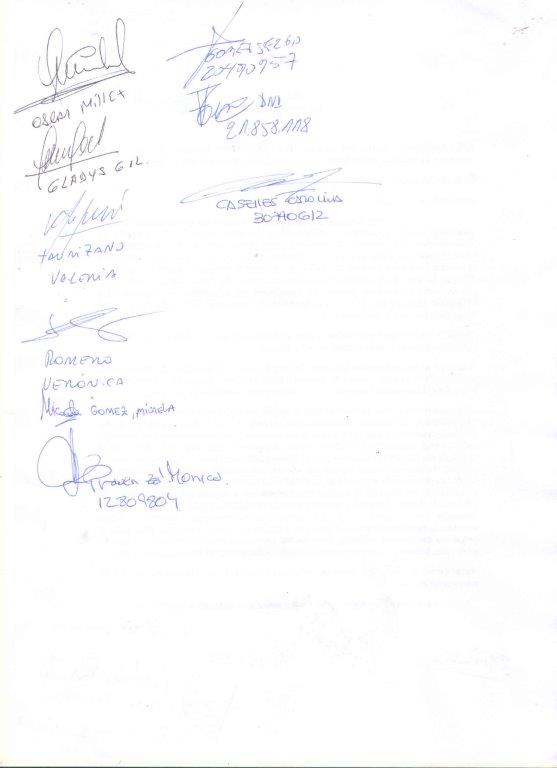 OSCAR MILLET
GLADYS GIL.
VALERIA
ROMERO
VERÓNICA
Micaela GOMEZ, MICAELA
Monica.
12809804
GOMEZ SERGIO
20490957
DNI
21.858.118
CASERES CAROLINA
30790612